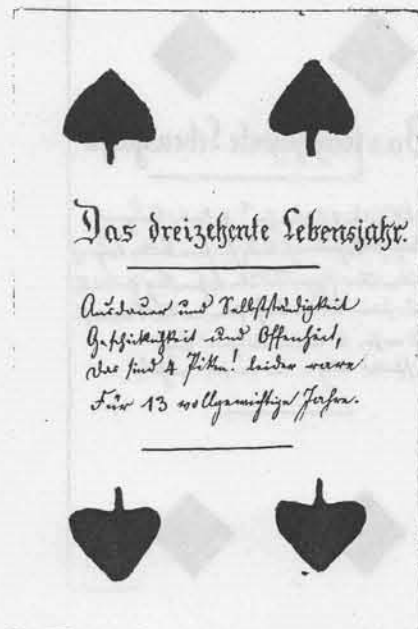 Das dreizehente Lebensjahr.
Ausdauer und Selbstständigkeit
Geschicklichkeit und Offenheit,
Das sind 4 Pike! leider rare
Für 13 vollgewichtige Jahre.